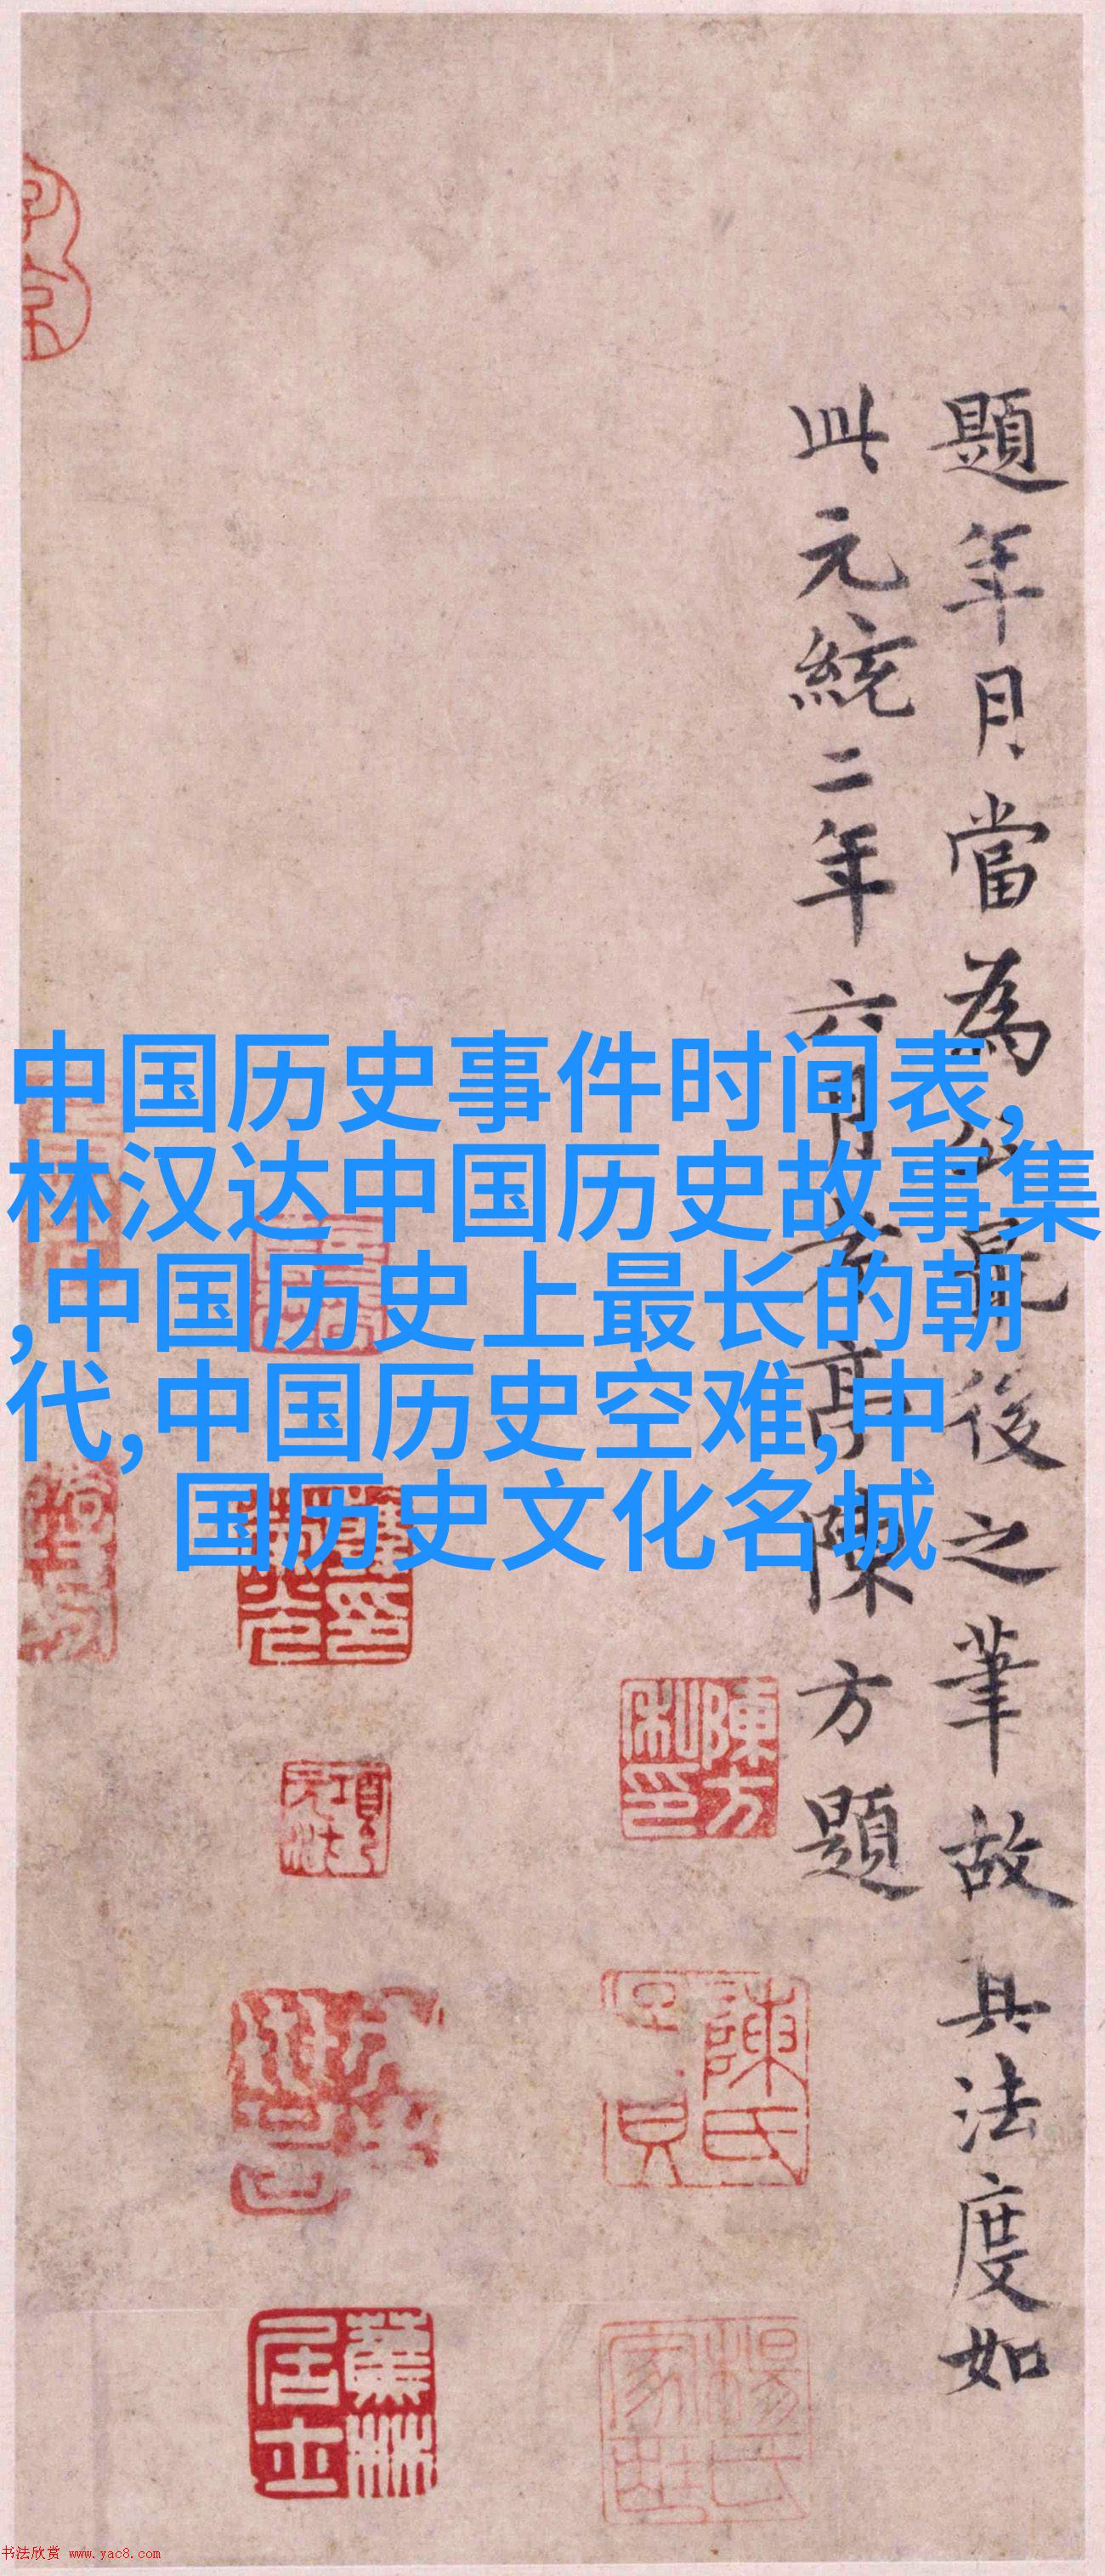 題年月當為後之筆故具法度如
此元統二年六月亭陳方題
中国历史事件时间表,
林汉达中国历史故事集
,中国历史上最长的朝
代,中国历史空难,中
国历史文化名城
陳方私印
陳氏
蕉林居士
书法欣赏 www.yac8.com